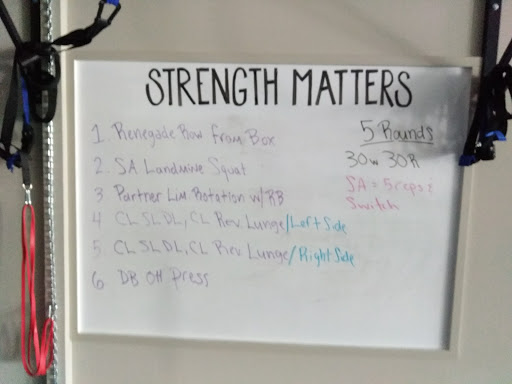 STRENGTH MATTERS
1. Renegade Row from Box
2. SA Landmine Squat
3 Partner Lm Rotation w/RB
4 CL SLDL, CL Rev Lunge/Left Side
5. CL SLDL, CL Rev Lunge/Right Side
6 DB OH Press
5 Rounds
30w 30R
SA = 5 reps &
Switch